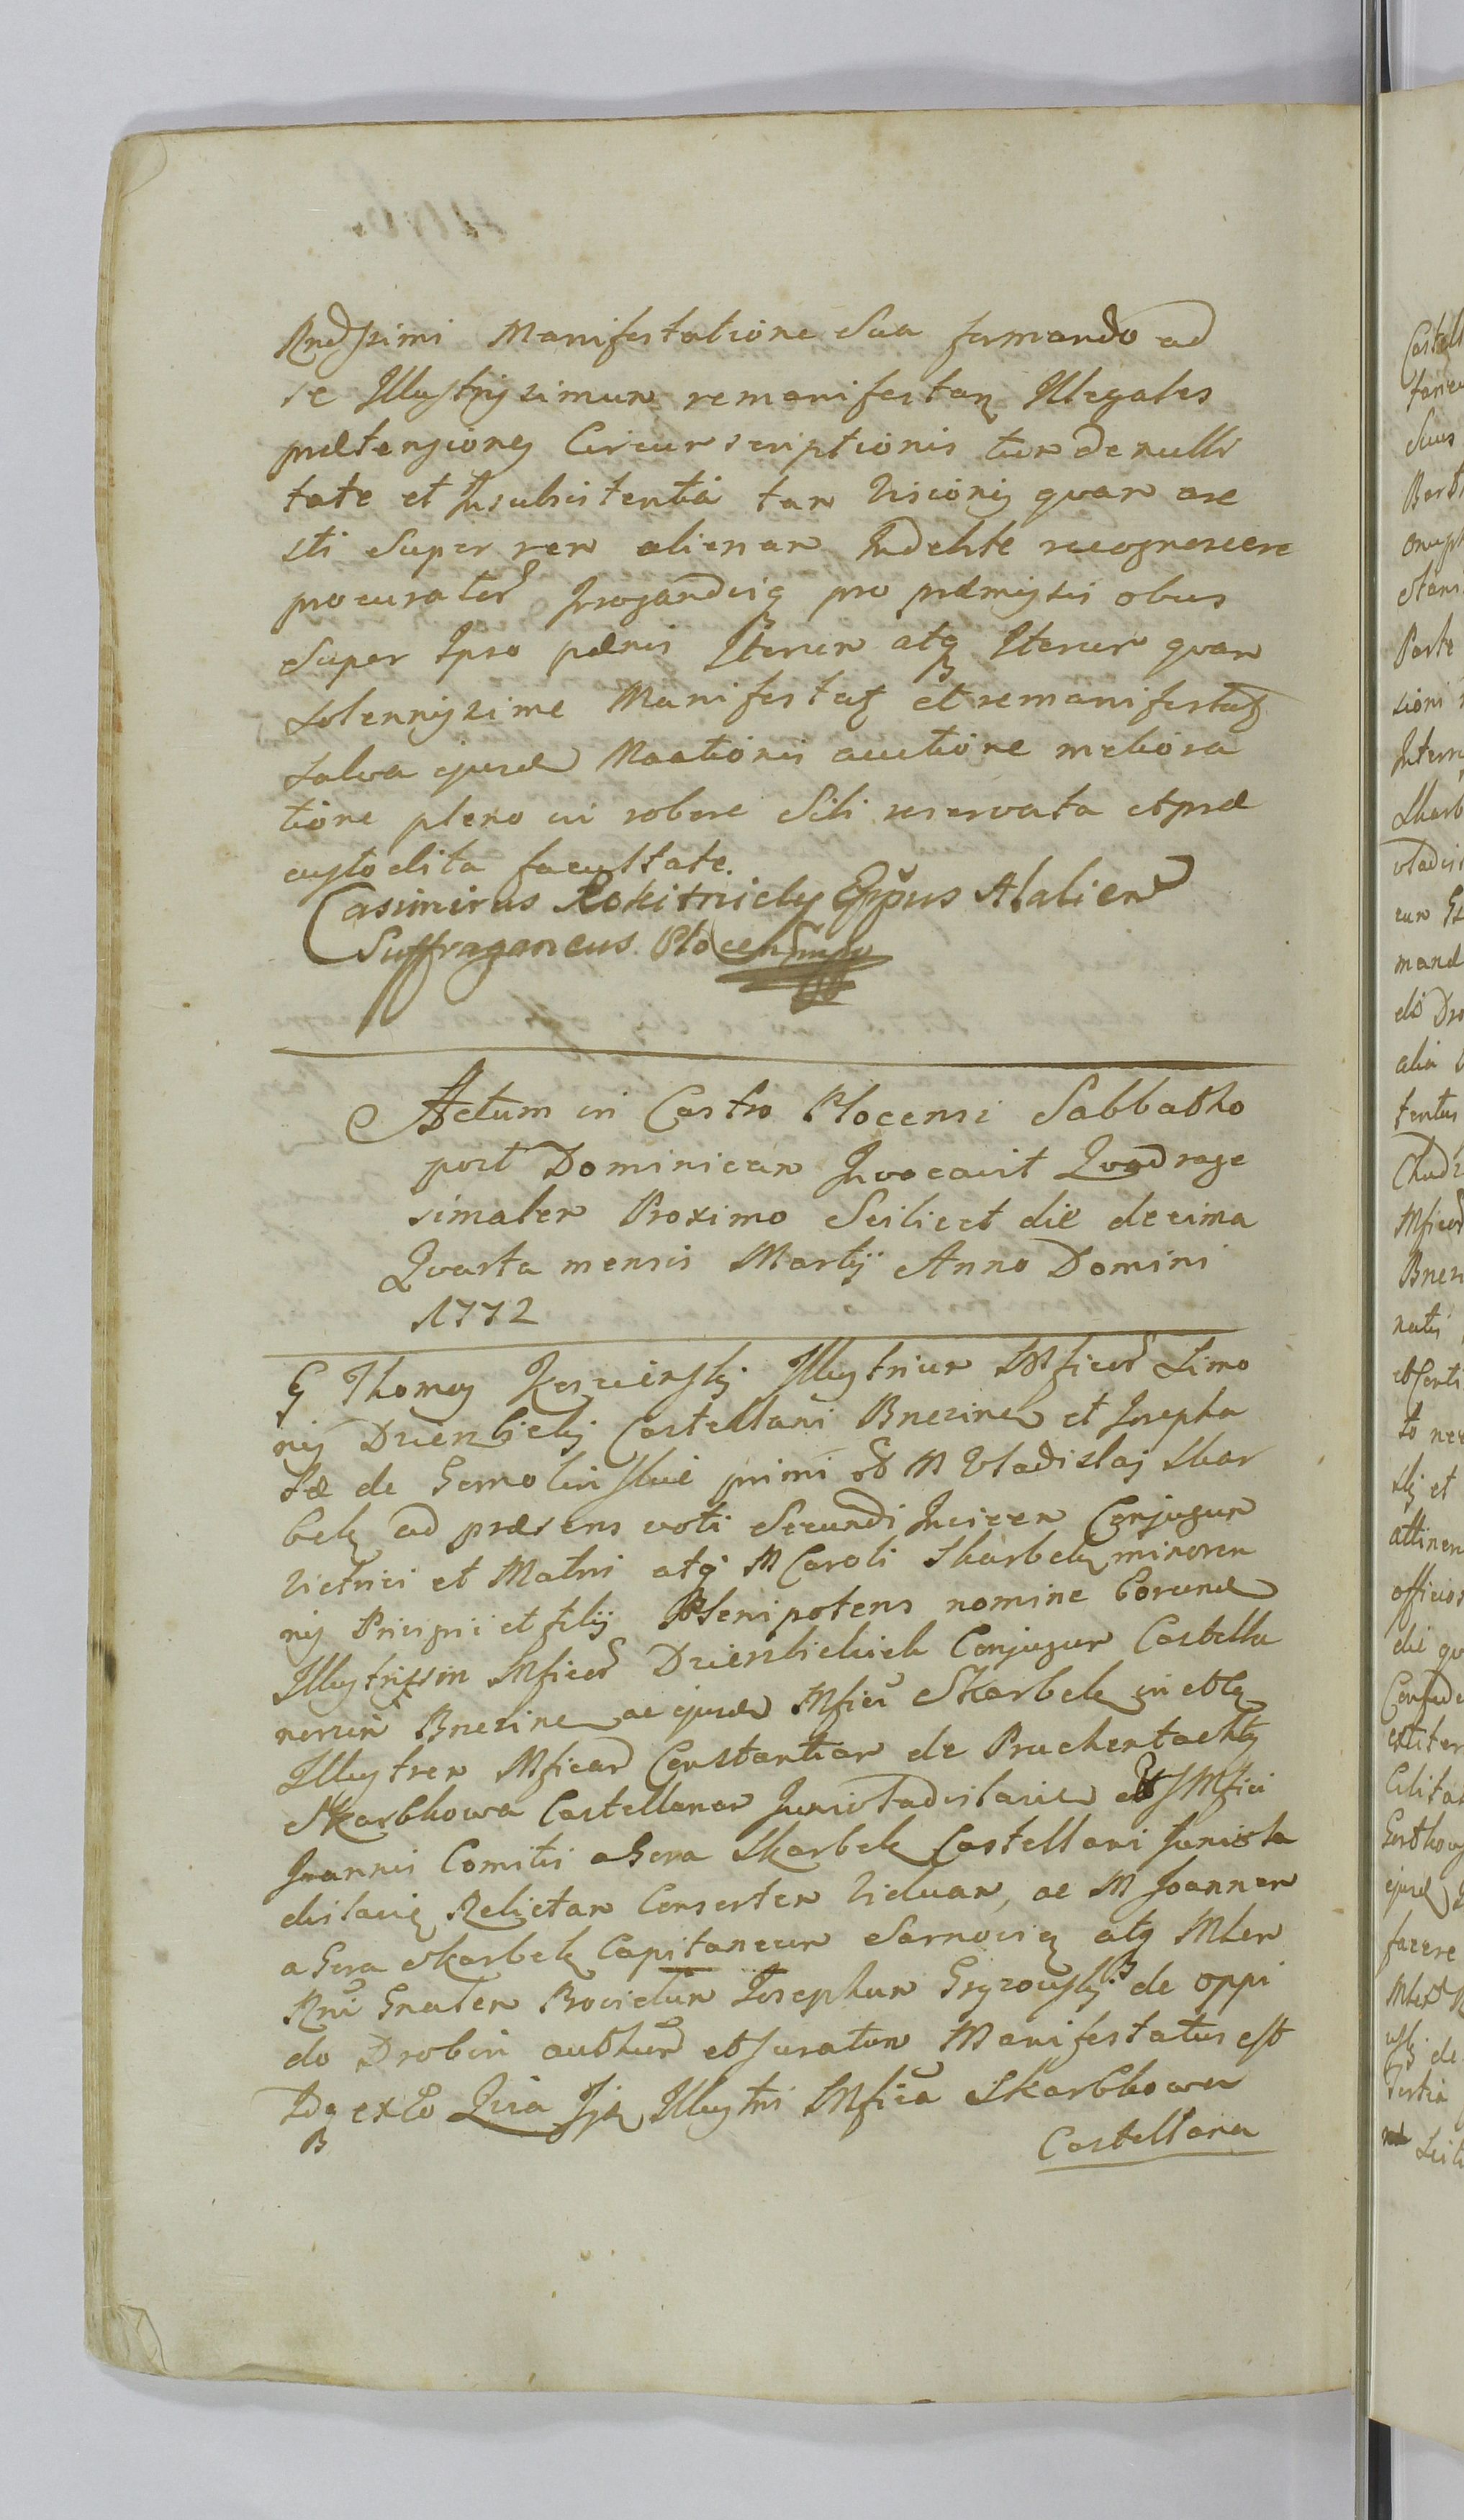 Rndssimi Manifestatione Sua formando ad
se Illustrissimum remanifestan Illegales
prætensiones Circumscriptionis tum de nulli
tate et Insubsistentia tam Visionis quam are
sti Super rem alienam Indebite recognoscere
procurator Irrogandis pro præmissis obus
Super Ipso pænis Iterum atq Iterum quam
Solennissime Manifestat et remanifestat
Salva ejusd Maationis auctione meliora
tione pleno in robore Sibi reservata et præ
custodita facultate.
Casimirus Rokitnicky Eppus Atalien
Suffraganeus Plocen
Actum in Castro Plocensi Sabbatho
post Dominicam Invocavit Quadrage
simalem Proximo Scilicet die decima
Quarta mensis Martÿ Anno Domini
1772
G Thomas Illustrium Mficor Simo
nis Dziembicky Castellani Brezinen et Josepha
tæ de Gemolinskie primi ob M Vladislaj Skar
bek ad præsens voti Secundi Invicem Conjugum
Victrici et Matri atq M Caroli Skarbek minoren
nis Privigni et filÿ Plenipotens nomine Eorund
Illustrissim Mficor Dziembickich Conjugum Castella
norum Brezinen ac ejusd Mfici Skarbek in obtq
Illustrem Mficam Constantiam de
Skarbkowa Castellanam Junivladislavien olim Mfici
Joannis Comitis a Gora Skarbek Castellani Junivla
dislavien Relictam Consortem Viduam, ac M Joannem
a Gora Skarbek Capitaneum Sarnovien atq Mlem
Rni Gnalem Josephum Gryzowsky de oppi
do Drobin authum et Juratum Manifestatus est
Idq ex Eo Quia Ipsa Illustri Mfica Skarbkowa
Castellana